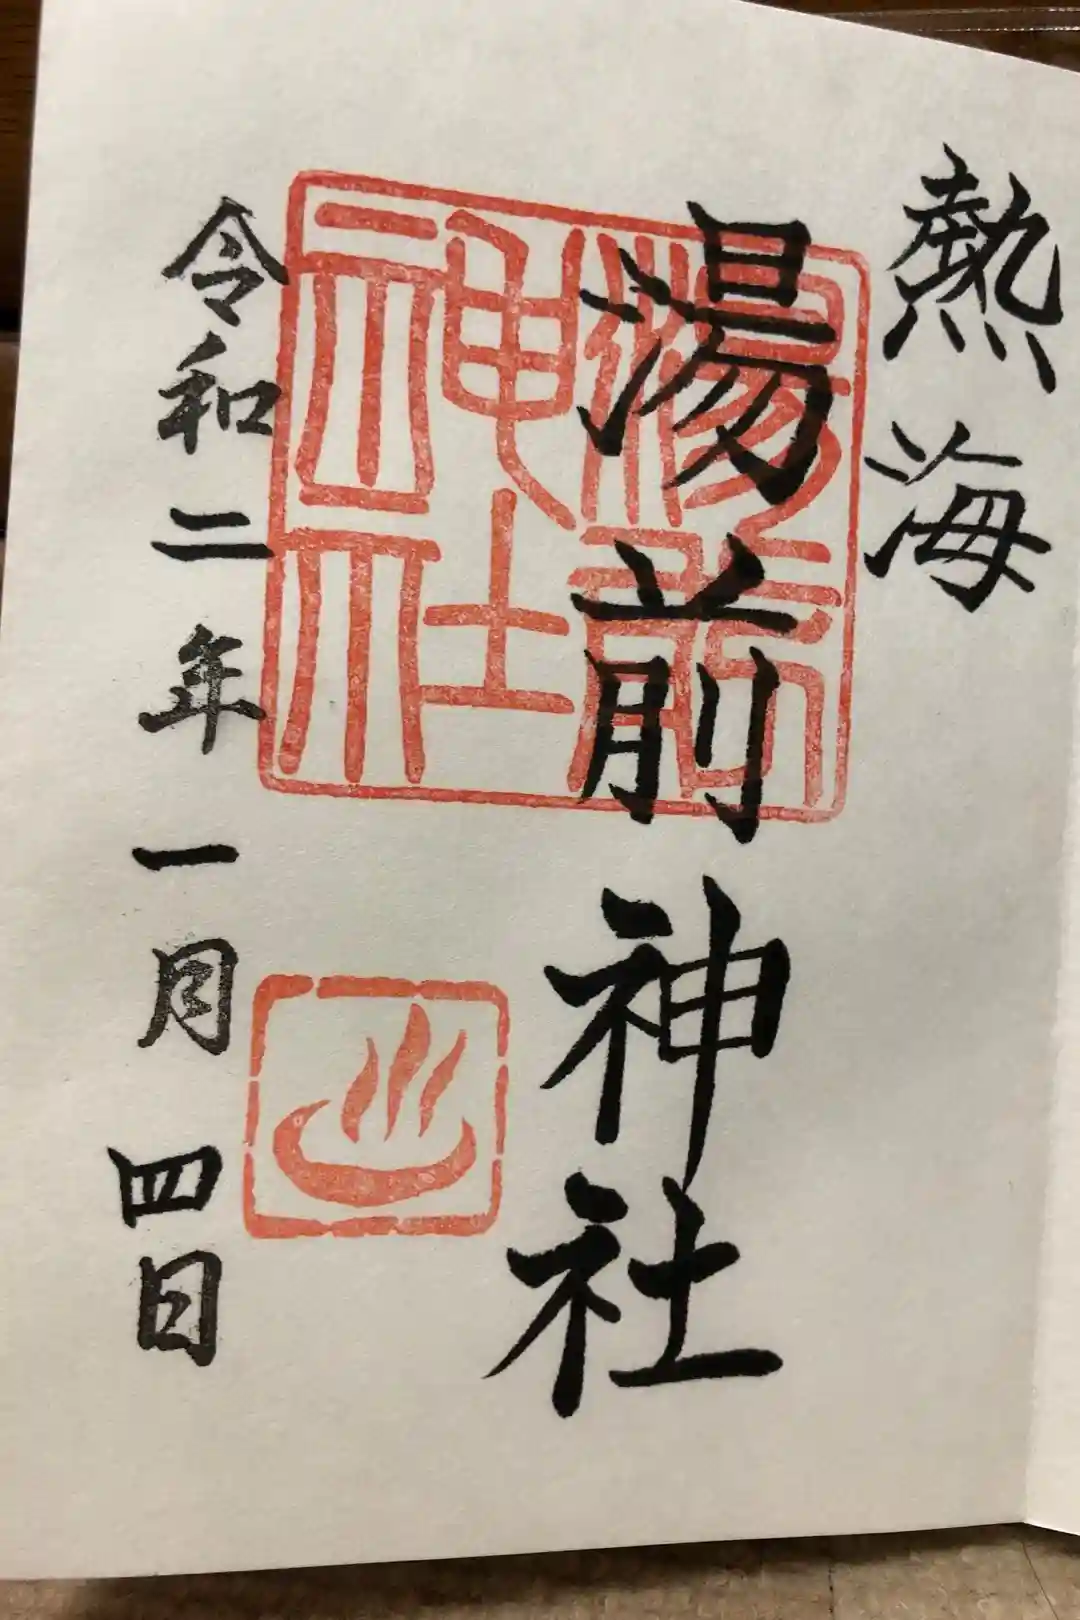 熱海
湯前神社
湯前
神社
令和二年一月四日